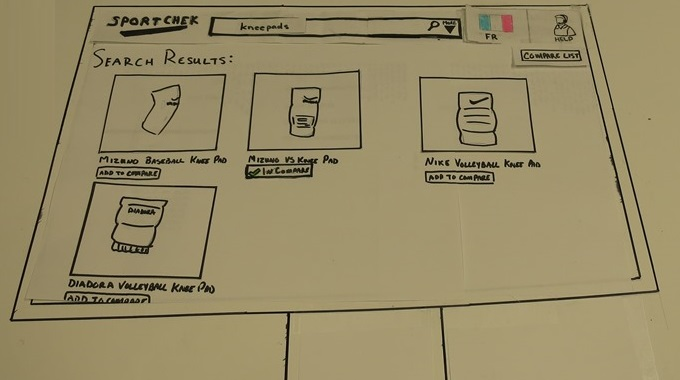 SPORTCHEK
kneepads
MORE
FR
HELP
COMPARE LIST
SEARCH RESULTS:
MIZUNO BASEBALL KNEE PAD
ADD TO COMPARE
MIZUNO VS KNEE PAD
IN COMPARE
NIKE VOLLEYBALL KNEE PAD
ADD TO COMPARE
DIADORA
DIADORA VOLLEYBALL KNEE PAD
ADD TO COMPARE